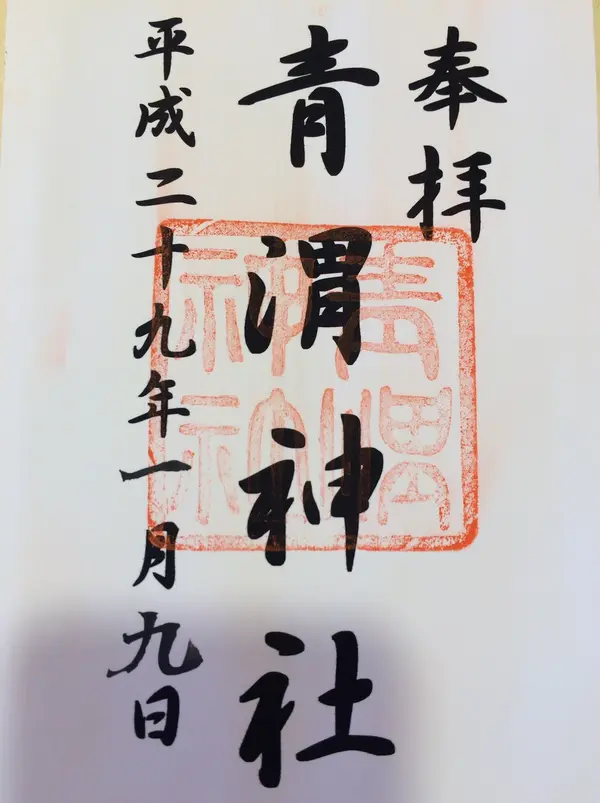 奉拝
青渭神社
平成二十九年一月九日